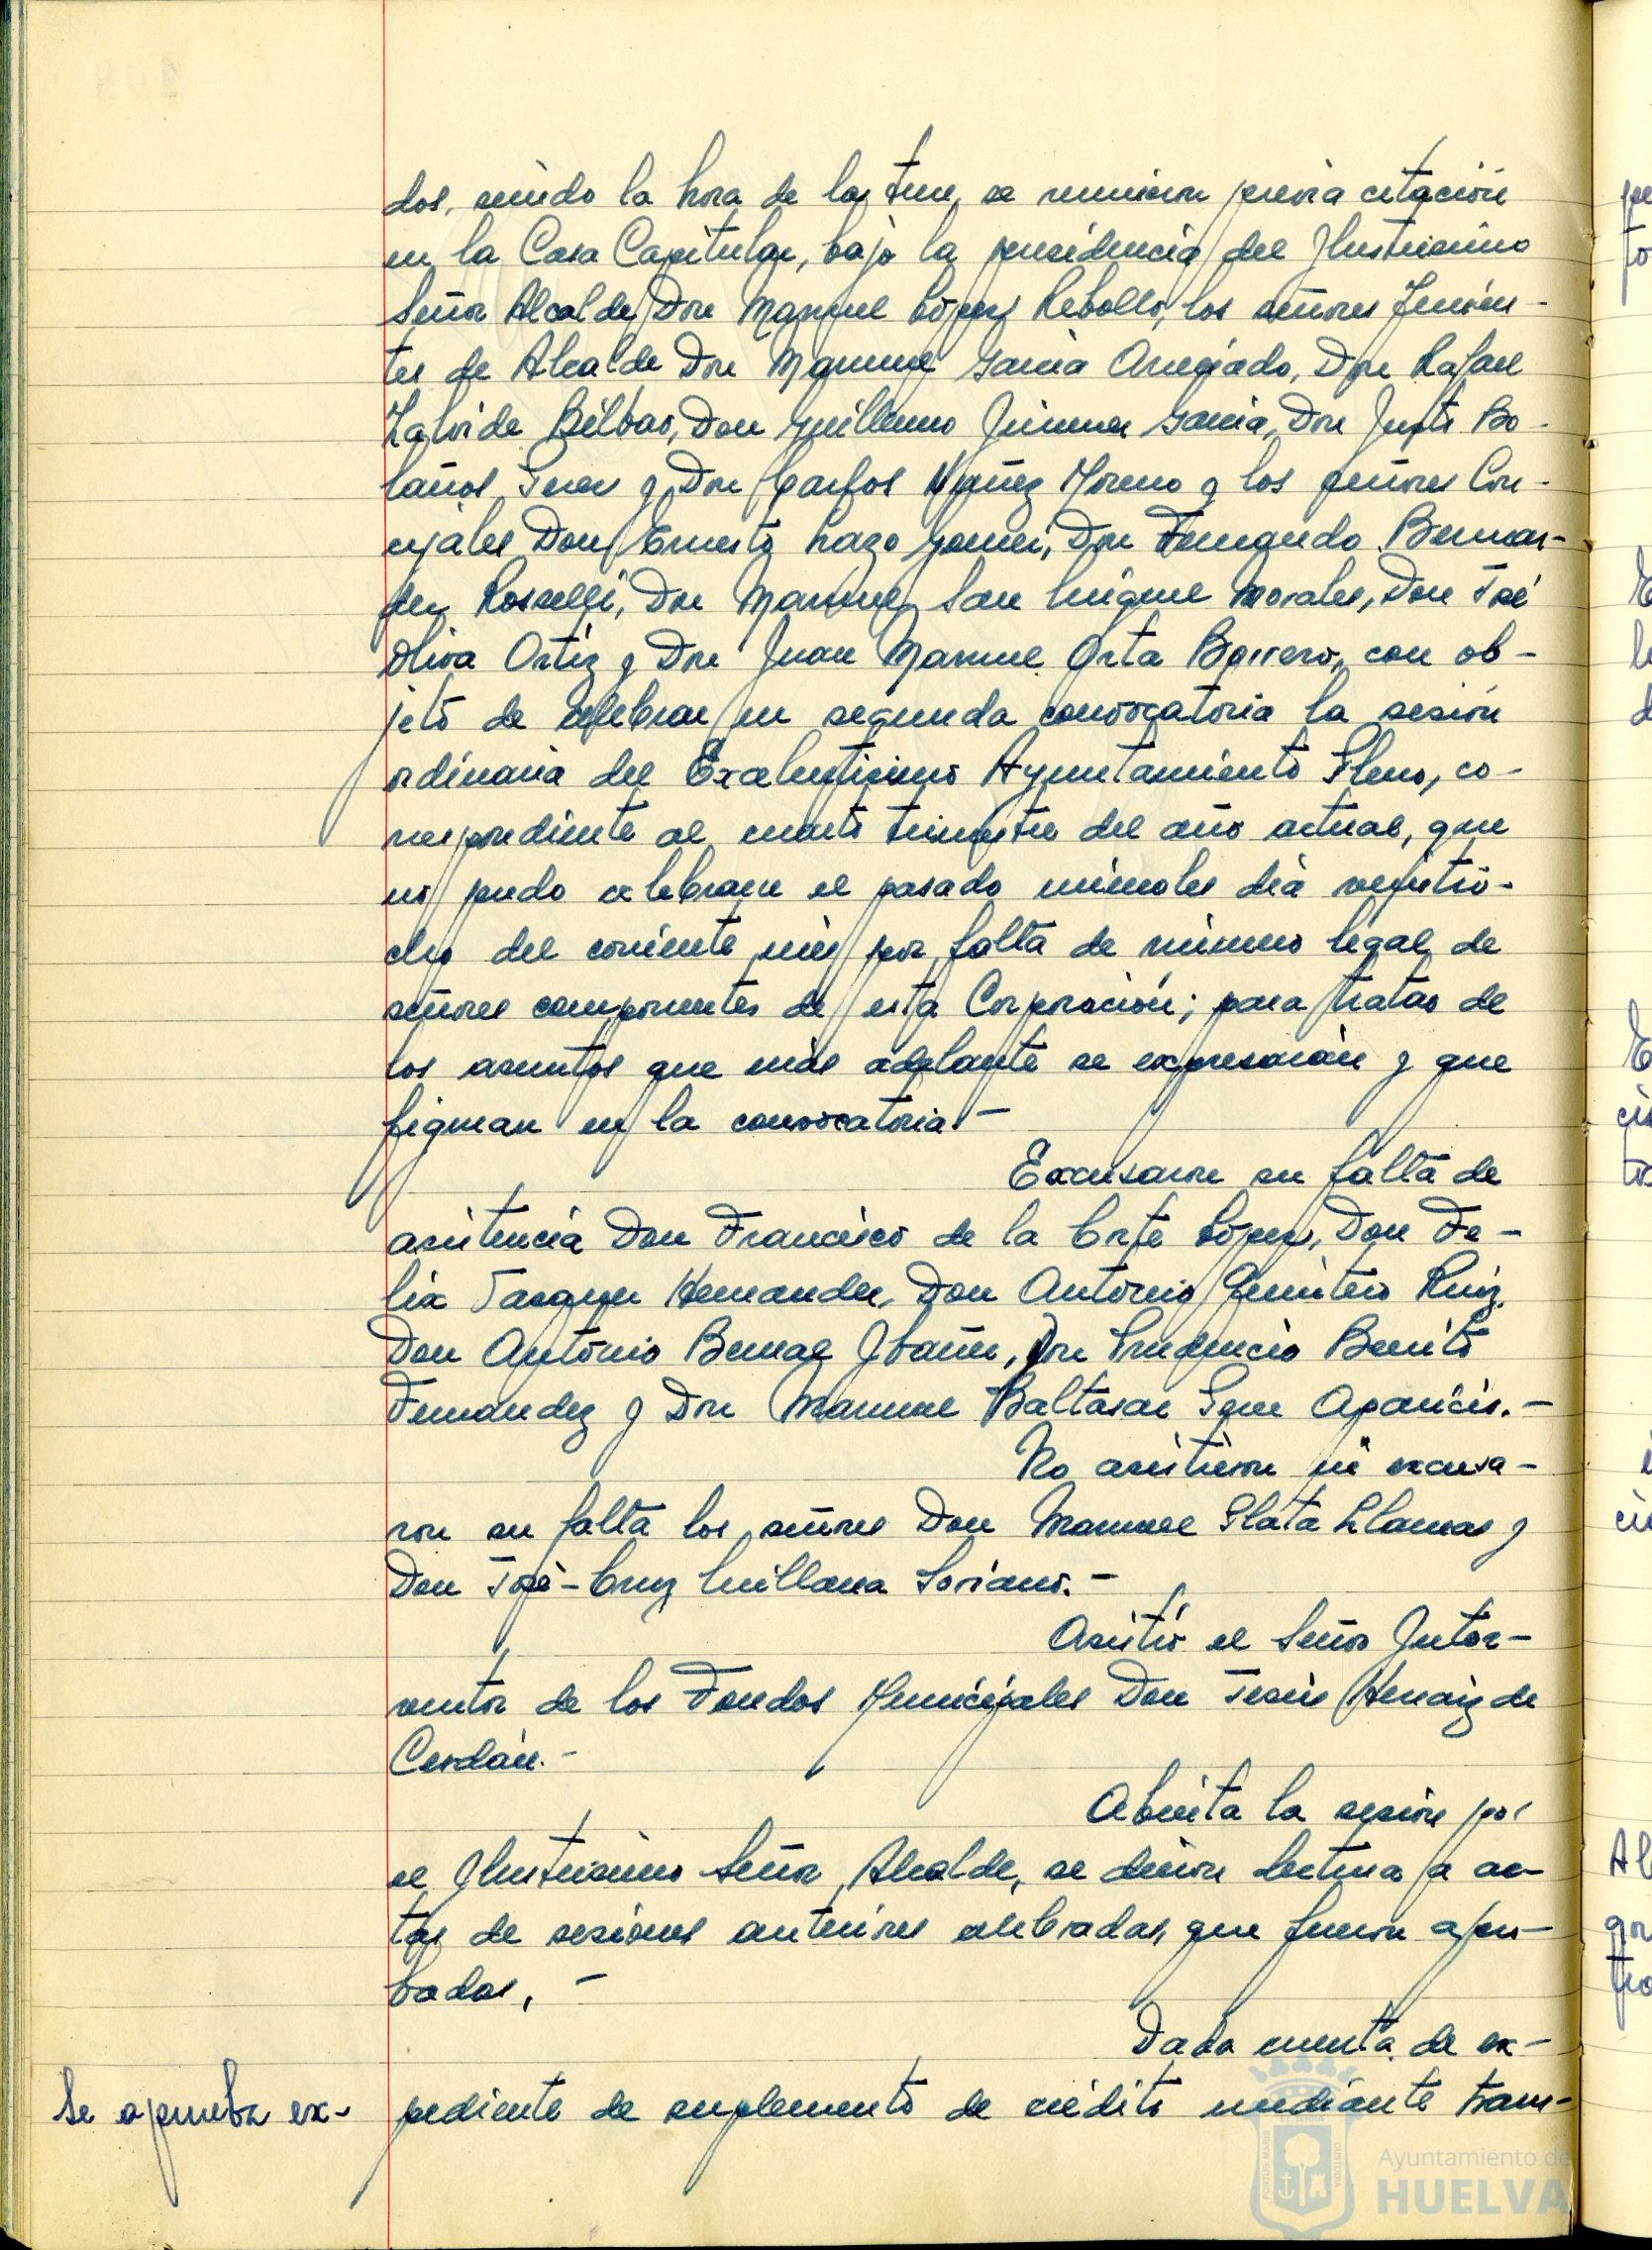 dos, siendo la hora de las trece, se reunieron previa citación
en la Casa Capitular, bajo la presidencia del Ilustrisimo
Señor Alcalde Don Manuel López Rebollo, los señores Tenien-
tes de Alcalde Don Manuel Garcia Anegiado, Don Rafael
Zalvide Bilbao, Don Guillermo Jimenez Garcia, Don Justo Bo-
laños Perez y Don Carlos Nuñez Moreno y los señores Con-
cejales Don Ernesto Lazo Gomez, Don Fernando Bermu-
dez Rosselli, Don Manuel San Miguel Morales, Don José
Oliva Ortiz y Don Juan Manuel Orta Borrero, con ob-
jeto de celebrar en segunda convocatoria la sesión
ordinaria del Excelentisimo Ayuntamiento Pleno, co-
rrespondiente al cuarto trimestre del año actual, que
no pudo celebrarse el pasado miercoles dia veintio-
cho del corriente mes por falta de número legal de
señores componentes de esta Corporación; para tratar de
los asuntos que más adelante se expresarán y que
figuran en la convocatoria.-
Excusaron su falta de
asistencia Don Francisco de la Corte López, Don Fe-
lix Vazquez Hernandez, Don Antonio Quintero Ruiz,
Don Antonio Bernal Ibañez, Don Prudencio Benito
Fernandez y Don Manuel Baltasar Aparicio.-
No asistieron ni excusa-
ron su falta los señores Don Manuel Plata Llamas y
Don José-Cruz Millana Soriano.-
Asistió el Señor Inter-
ventor de los Fondos Municipales Don Jesús Hernaiz de
Cerdán.-
Abierta la sesión por
el Ilustrisimo Señor Alcalde, se dieron lectura a ac-
tas de sesiones anteriores celebradas, que fueron apro-
badas.-
Dada cuenta de ex-
Se aprueba ex-
pediente de suplemento de crédito mediante trans-
Ayuntamiento de
HUELVA